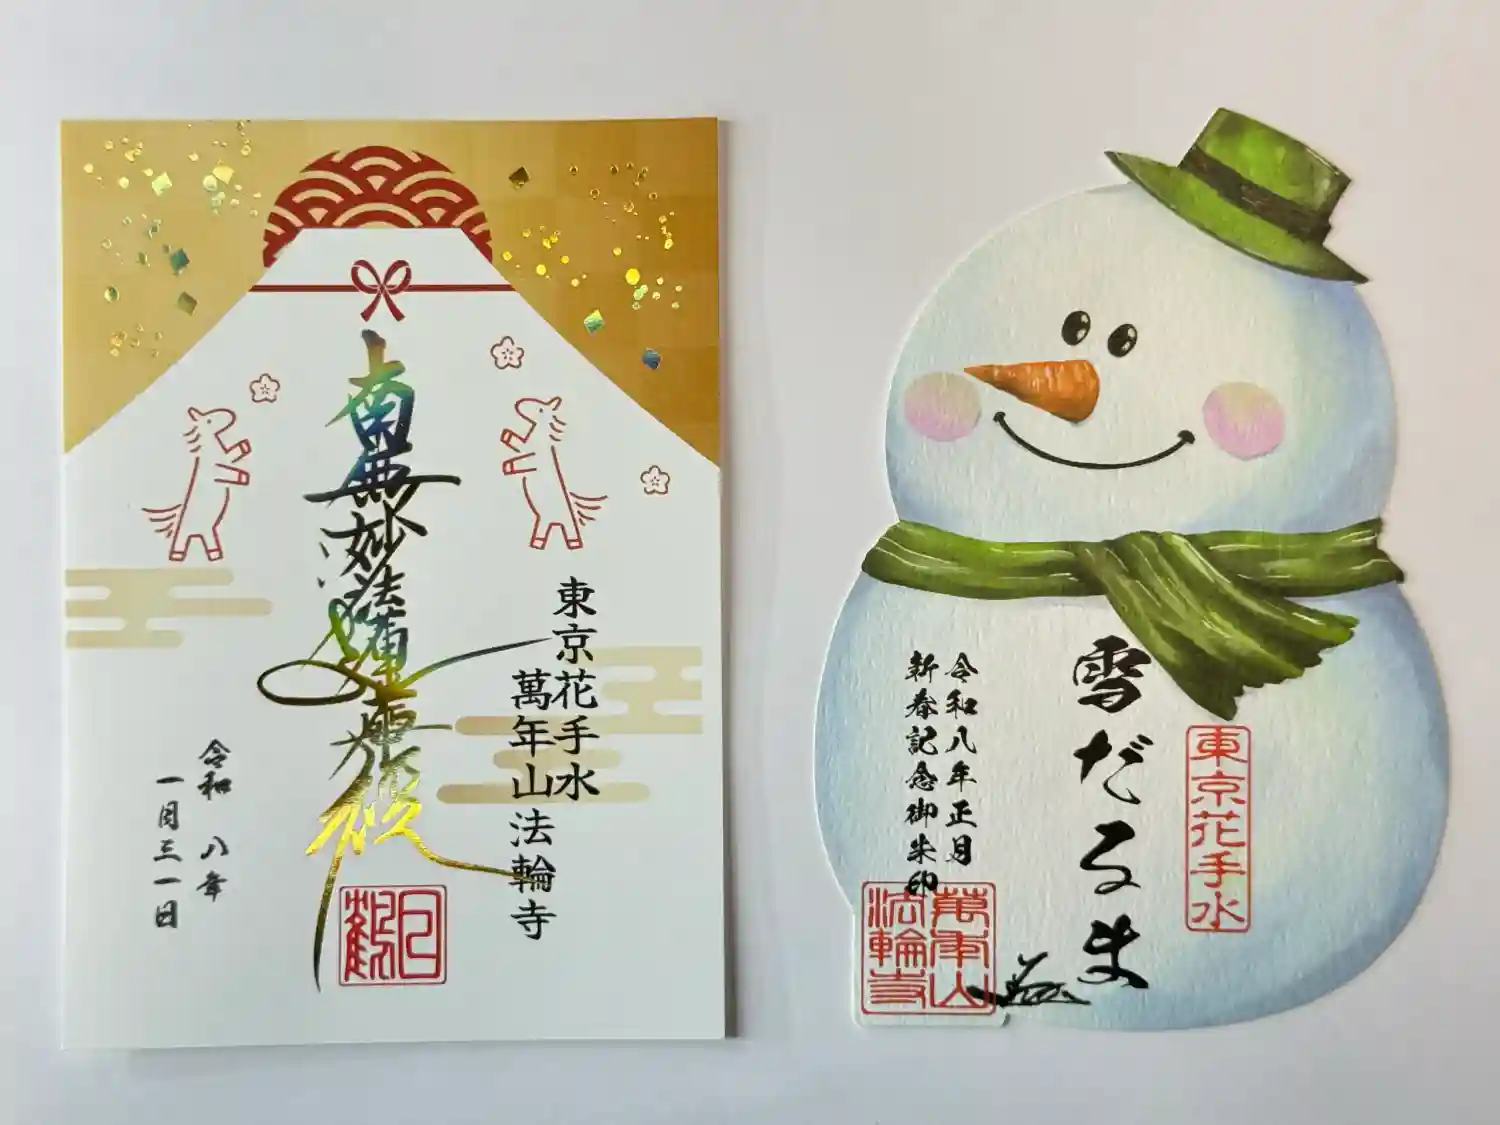 東京花手水
萬年山法輪寺
南無妙法蓮華経
令和 八年
一月三一日
雪だるま
東京花手水
令和八年正月
新春記念御朱印
萬年山
法輪寺